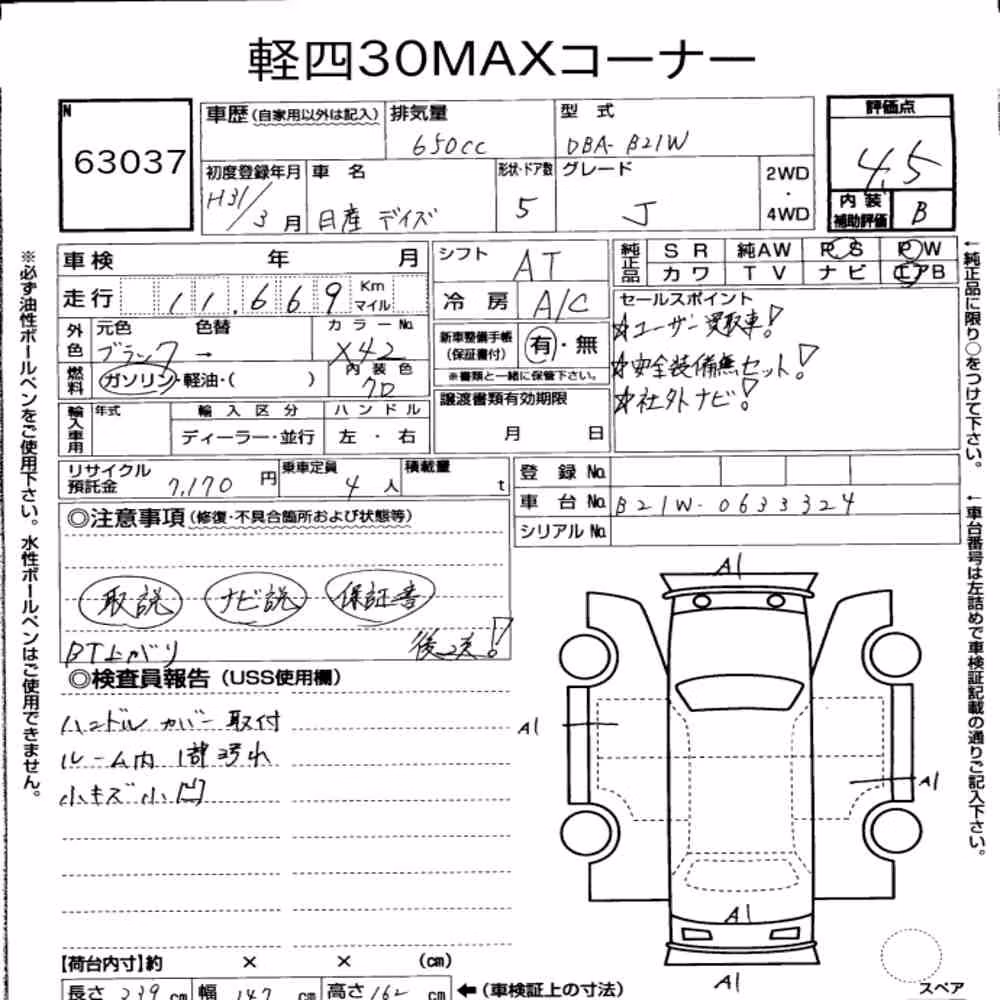 軽四30MAXコーナー
N
63037
車歴(自家用以外は記入)
排気量
650cc
型 式
DBA-B21W
評価点
4.5
内装補助評価
B
初度登録年月
H31/3月
車 名
日産 デイズ
形状・ドア数
5
グレード
J
2WD
・
4WD
車検 年 月
走行 11,669 Km マイル
外色
元色
ブラック
色替
→
カラーNo.
X42
燃料
ガソリン・軽油・( )
内装色
輸入車用
年式
輸入区分
ディーラー・並行
ハンドル
左・右
シフト
AT
冷房
A/C
新車整備手帳(保証書付)
有・無
※書類と一緒に保管下さい。
譲渡書類有効期限
月 日
純正品
SR 純AW PS PW
カワ TV ナビ エアB
セールスポイント
☆ユーザー買取車!
☆安全装備無セット!
☆社外ナビ!
リサイクル預託金
7,170円
乗車定員
4人
積載量
t
登録No.
車台No.
B21W-0633324
シリアルNo.
◎注意事項(修復・不具合箇所および状態等)
取説 ナビ説 保証書
後送!
BT上がり
◎検査員報告(USS使用欄)
ハンドルカバー取付
ルーム内1部汚れ
小キズ小凹
A1
A1
A1
A1
A1
【荷台内寸】約 × × (cm)
長さ 339 cm
幅 147 cm
高さ 162 cm
←(車検証上の寸法)
スペア
※必ず油性ボールペンをご使用下さい。水性ボールペンはご使用できません。
←純正品に限り○をつけて下さい。
←車台番号は左詰めで車検証記載の通りご記入下さい。